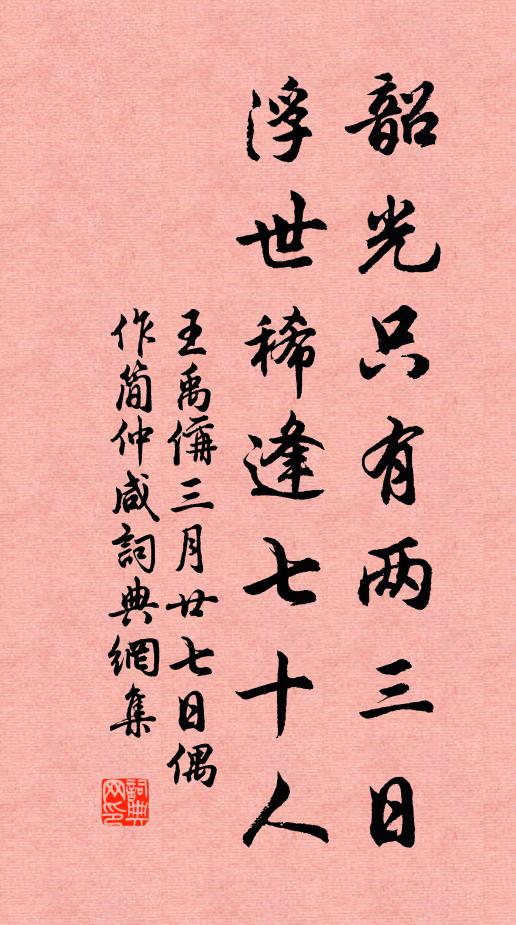 韶光只有两三日
浮世稀逢七十人
王禹偁三月廿七日偶
作简仲咸詞典網集
詞典网印